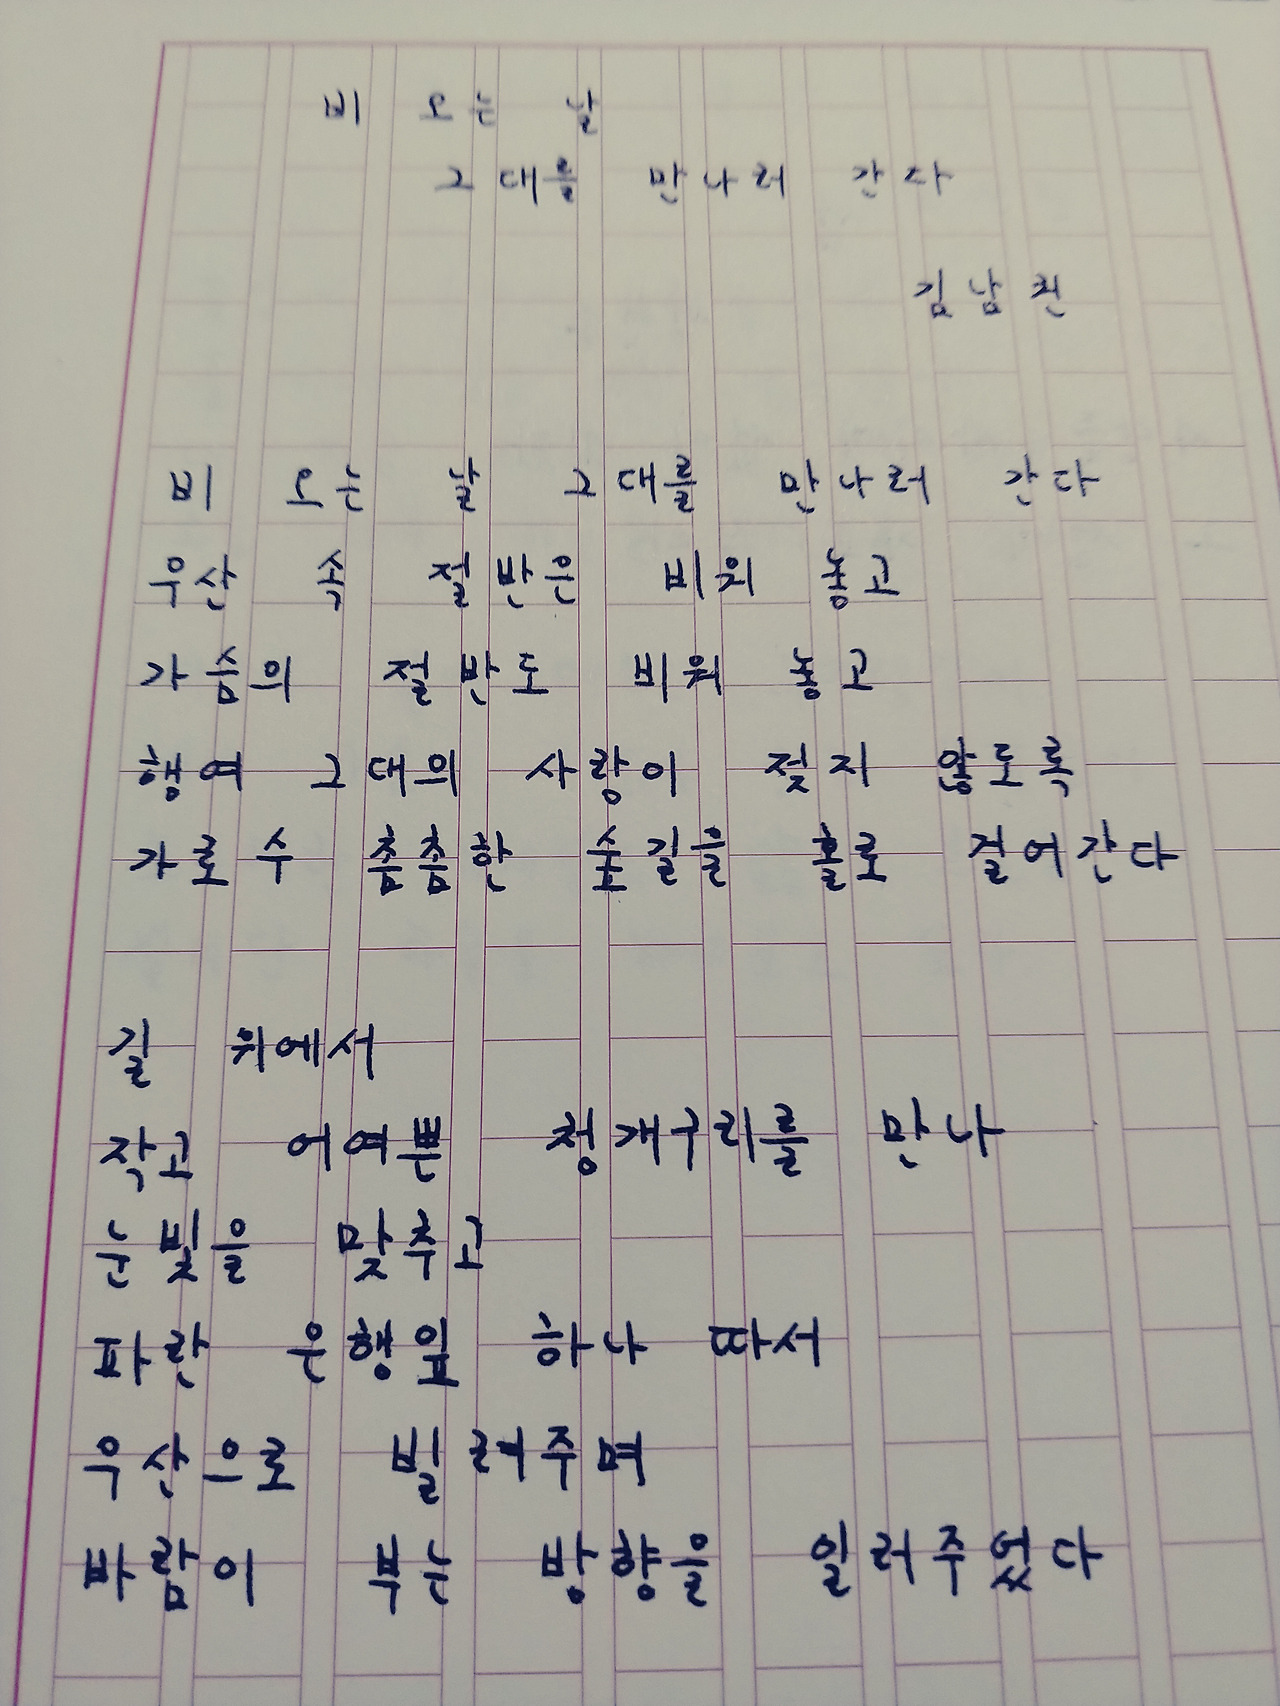 비 오는 날
그대를 만나러 간다
김남권
비 오는 날 그대를 만나러 간다
우산 속 절반은 비워 놓고
가슴의 절반도 비워 놓고
행여 그대의 사랑이 젖지 않도록
가로수 촘촘한 숲길을 홀로 걸어간다
길 위에서
작고 어여쁜 청개구리를 만나
눈빛을 맞추고
파란 은행잎 하나 따서
우산으로 빌려주며
바람이 부는 방향을 일러주었다